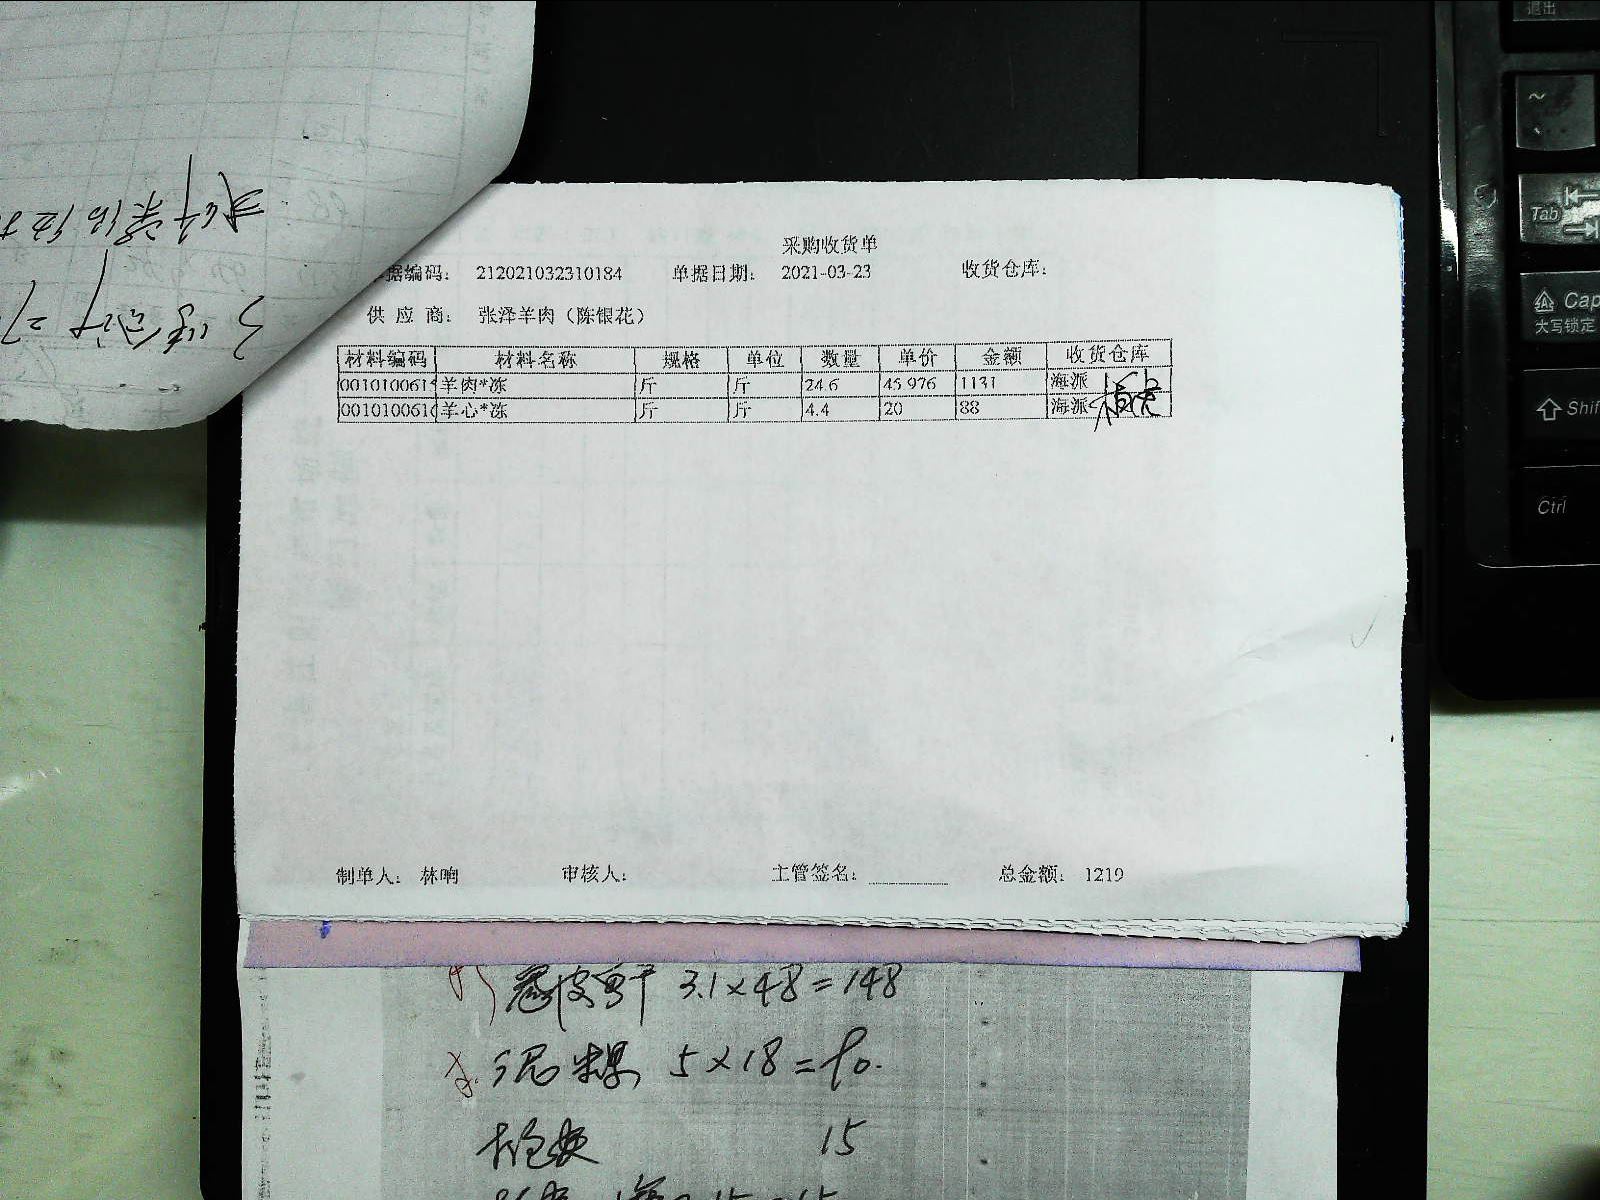 采购收货单
据编码： 212021032310184 单据日期： 2021-03-23 收货仓库：
供 应 商： 张泽羊肉（陈银花）
材料编码 材料名称 规格 单位 数量 单价 金额 收货仓库
0010100615 羊肉*冻 斤 斤 24.6 45.976 1131 海派
0010100616 羊心*冻 斤 斤 4.4 20 88 海派
制单人： 林响 审核人： 主管签名： 总金额： 1219
皮鱼干 3.1×48=148
5×18=90.
15
退出
~
Tab
Cap
大写锁定
Shif
Ctrl